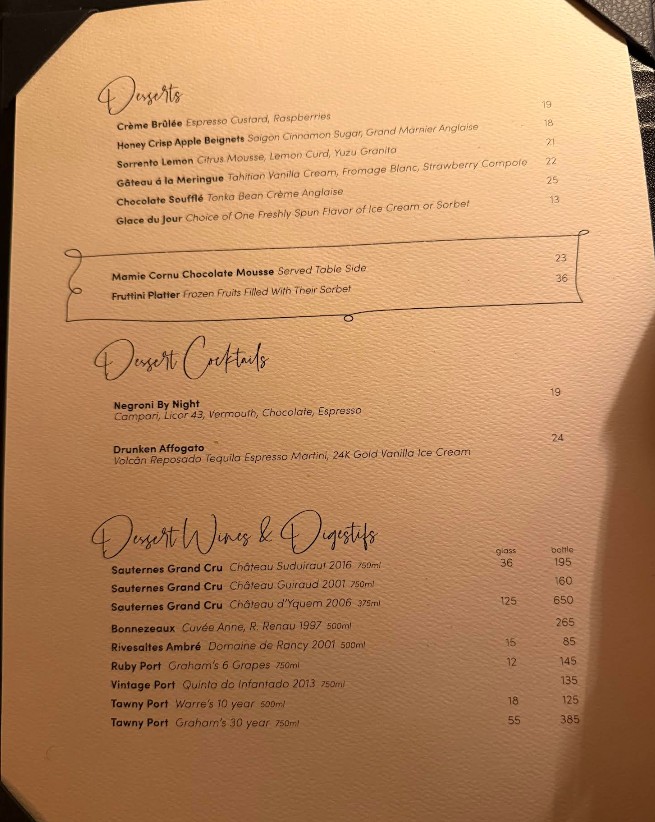 Desserts
Crème Brûlée Espresso Custard, Raspberries 19
Honey Crisp Apple Beignets Saigon Cinnamon Sugar, Grand Marnier Anglaise 18
Sorrento Lemon Citrus Mousse, Lemon Curd, Yuzu Granita 21
Gâteau á la Meringue Tahitian Vanilla Cream, Fromage Blanc, Strawberry Compote 22
Chocolate Soufflé Tonka Bean Crème Anglaise 25
Glace du Jour Choice of One Freshly Spun Flavor of Ice Cream or Sorbet 13
Mamie Cornu Chocolate Mousse Served Table Side 23
Fruttini Platter Frozen Fruits Filled With Their Sorbet 36
Dessert Cocktails
Negroni By Night 19
Campari, Licor 43, Vermouth, Chocolate, Espresso
Drunken Affogato 24
Volcàn Reposado Tequila Espresso Martini, 24K Gold Vanilla Ice Cream
Dessert Wines & Digestifs
glass bottle
Sauternes Grand Cru Château Suduiraut 2016 750ml 36 195
Sauternes Grand Cru Château Guiraud 2001 750ml 160
Sauternes Grand Cru Château d'Yquem 2006 375ml 125 650
Bonnezeaux Cuvée Anne, R. Renau 1997 500ml 265
Rivesaltes Ambré Domaine de Rancy 2001 500ml 15 85
Ruby Port Graham's 6 Grapes 750ml 12 145
Vintage Port Quinta do Infantado 2013 750ml 135
Tawny Port Warre's 10 year 500ml 18 125
Tawny Port Graham's 30 year 750ml 55 385